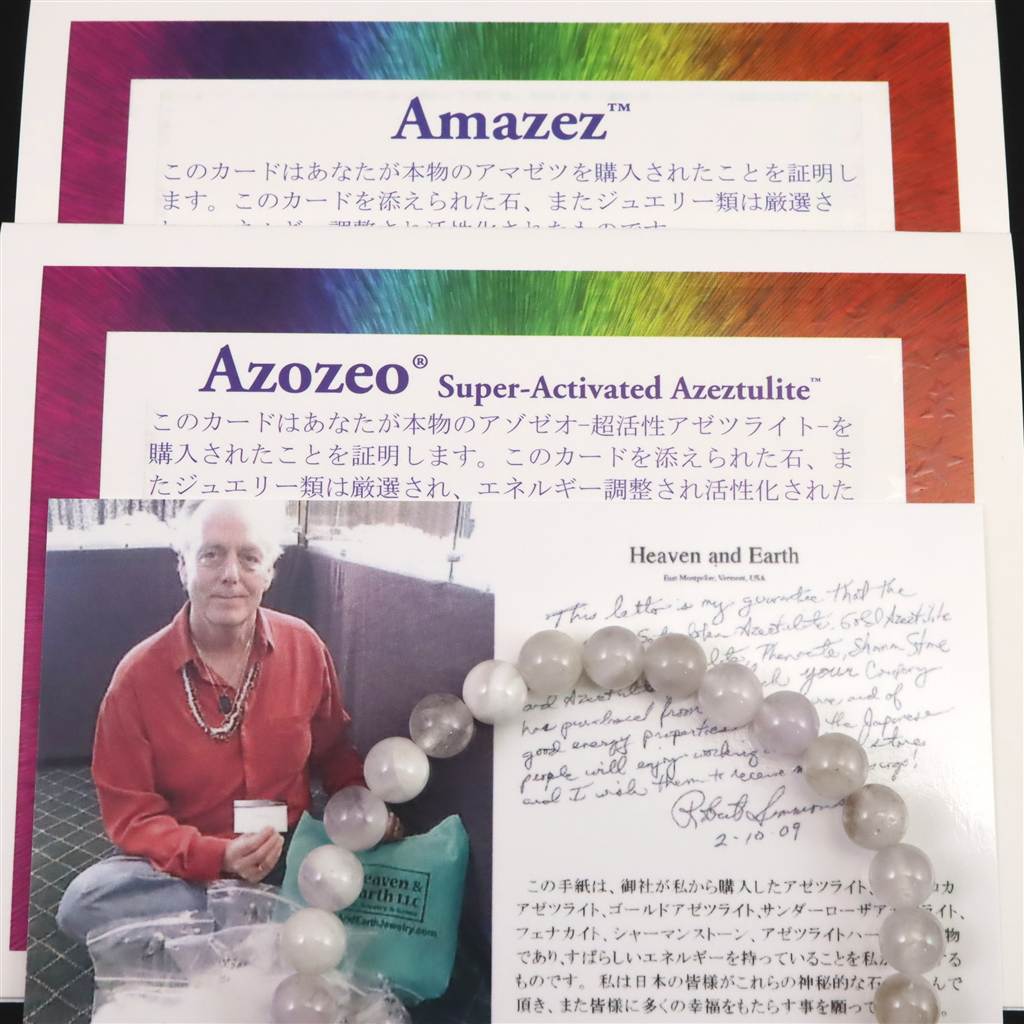 Amazez™
このカードはあなたが本物のアマゼツを購入されたことを証明し
ます。このカードを添えられた石、またジュエリー類は厳選さ
調整され活性化されたものです
Azozeo® Super-Activated Azeztulite™
このカードはあなたが本物のアゾゼオ-超活性アゼツライト-を
購入されたことを証明します。このカードを添えられた石、ま
たジュエリー類は厳選され、エネルギー調整され活性化された
Heaven and Earth
East Montpelier, Vermont, USA
This letter is my guarantee that the
Azeztulite, Gold Azeztulite
Shaman Stone
and Azeztulite your Company
has purchased from and of
good energy properties the Japanese
people will enjoy working
and I wish them to receive
Robert Simmons
2-10-09
eaven &
arth LLC
ndEarthJewelry.com
この手紙は、御社が私から購入したアゼツライト、 カ
アゼツライト、ゴールドアゼツライト、サンダーローザア イト、
フェナカイト、シャーマンストーン、アゼツライトハー 物
であり、すばらしいエネルギーを持っていることを私 する
ものです。 私は日本の皆様がこれらの神秘的な石 んで
頂き、また皆様に多くの幸福をもたらす事を願って